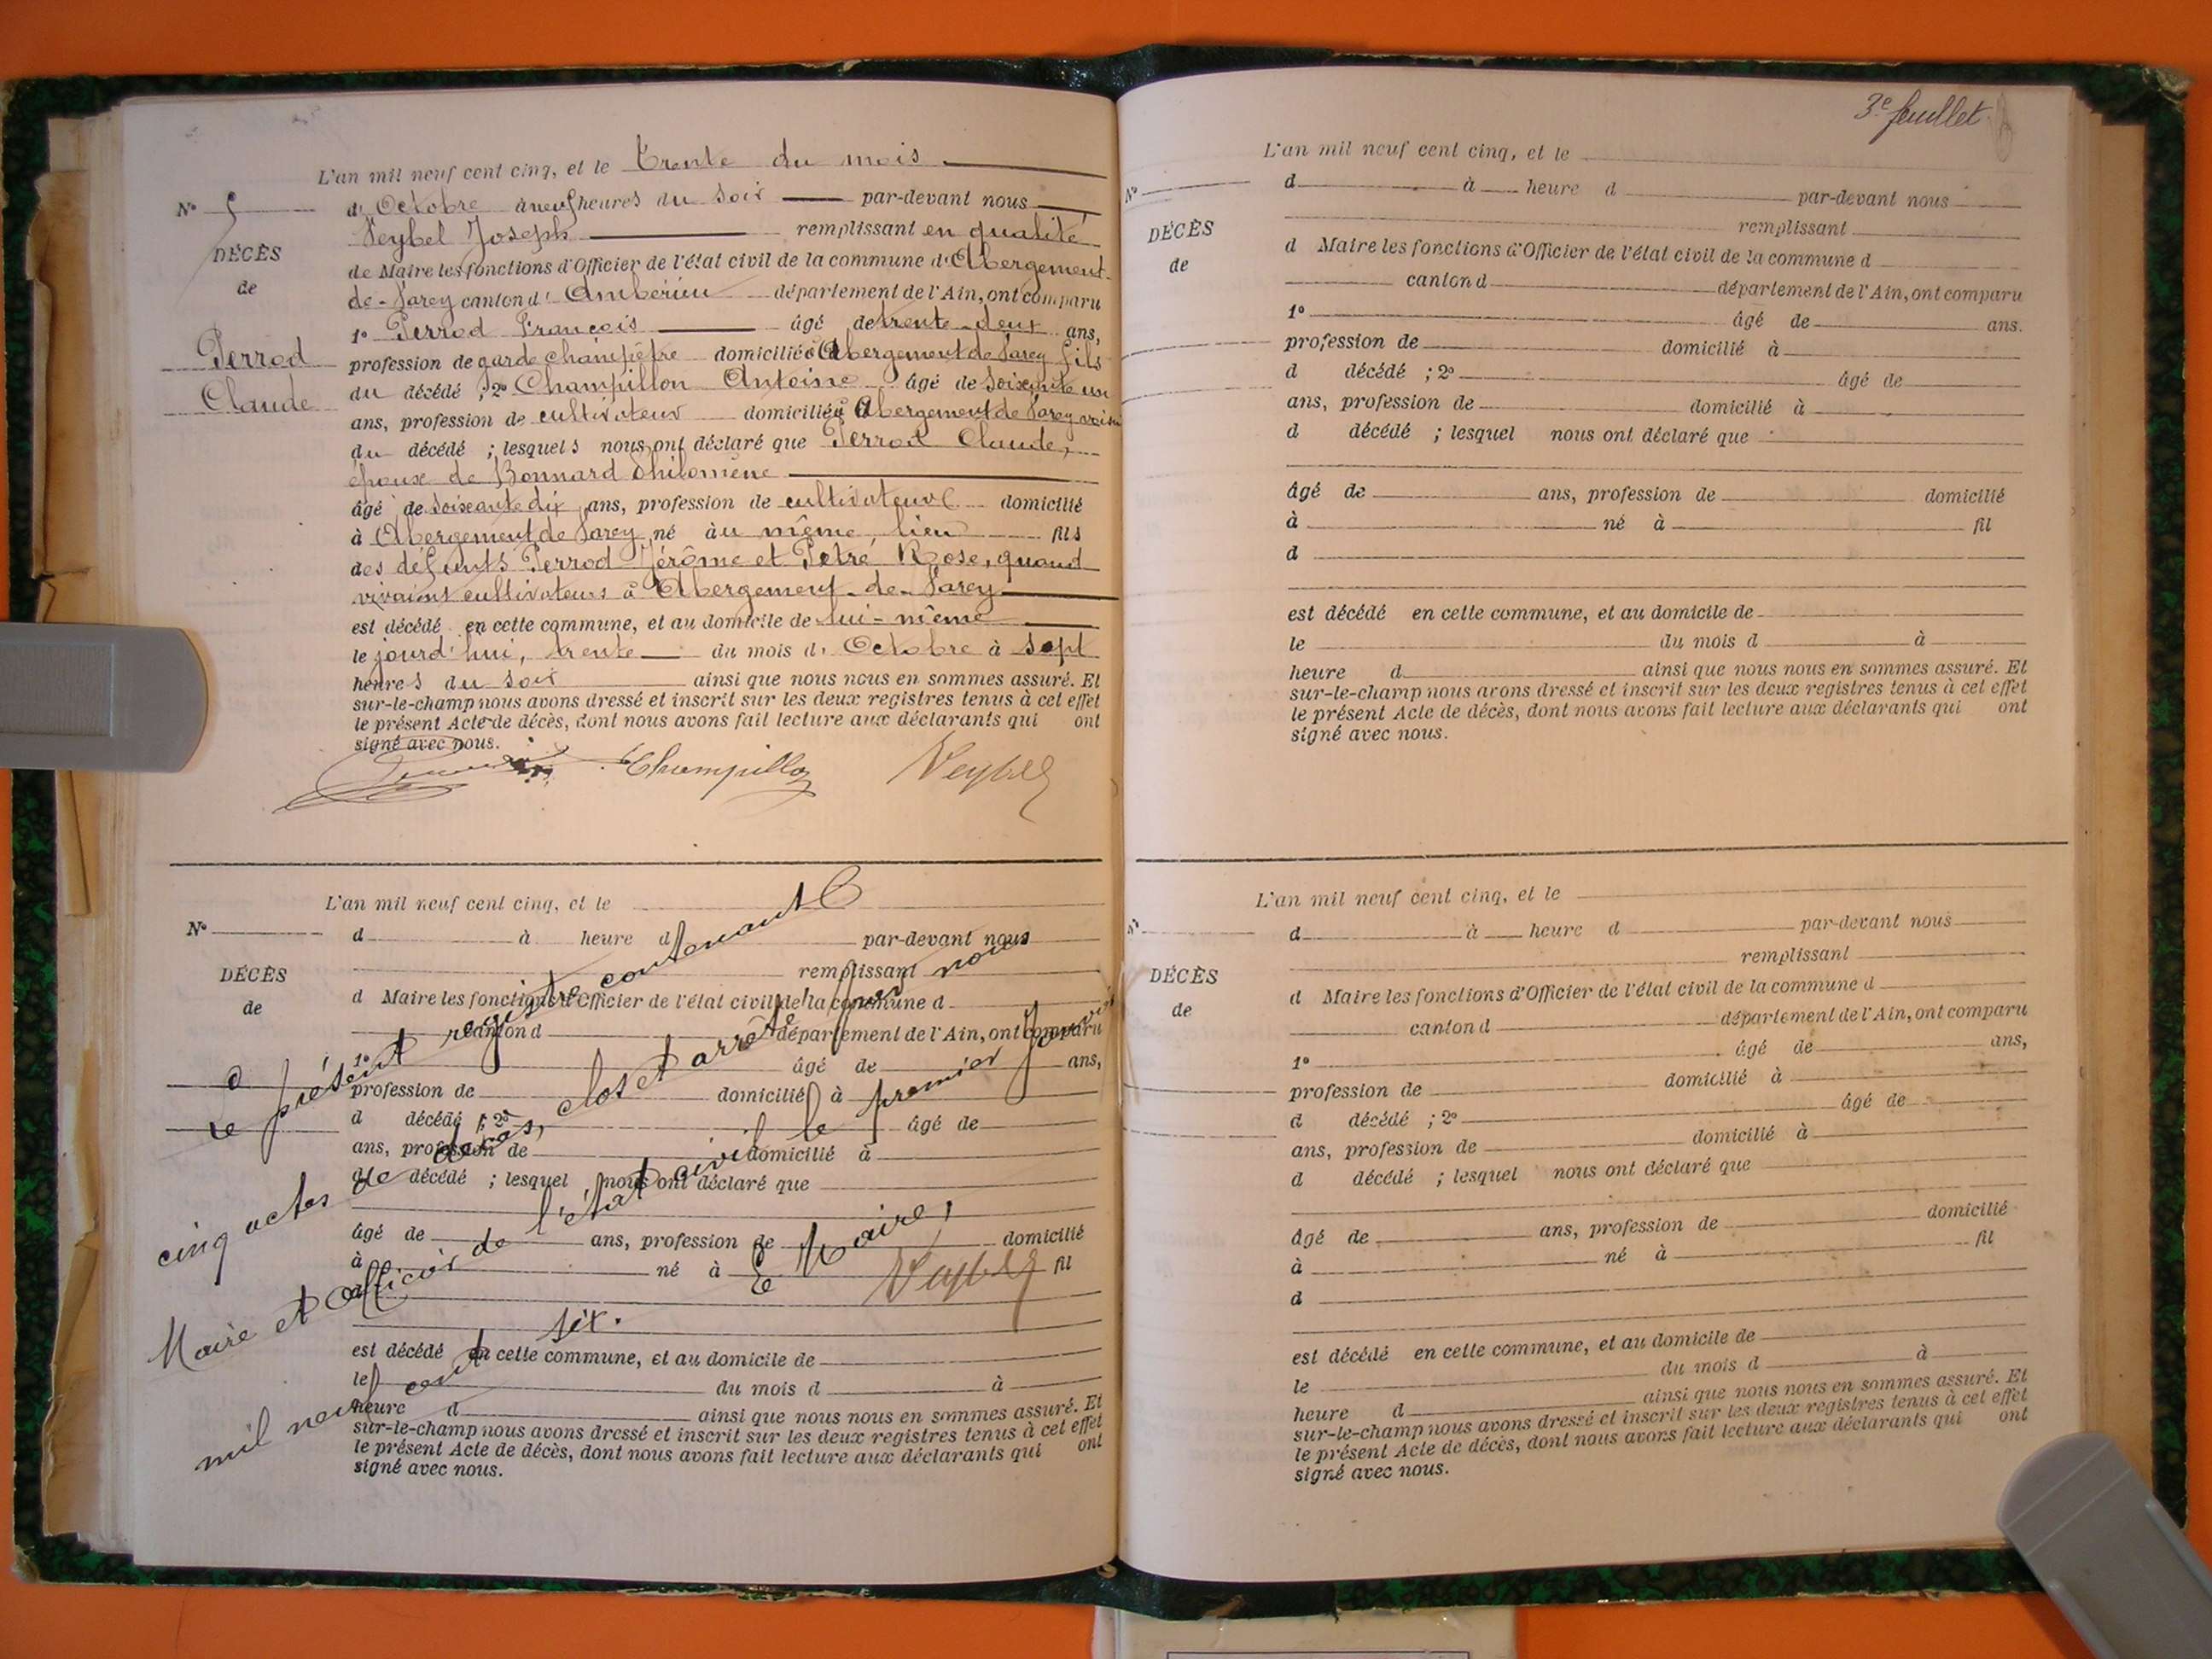 L'an mil neuf cent cinq, et le Trente du mois
N° 5
d'Octobre à neuf heures du soir par-devant nous
Veybel Joseph remplissant en qualité
DÉCÈS
de
Perrod
Claude
de Maire les fonctions d'Officier de l'état civil de la commune d'Abergement-
de-Varey canton d'Ambérieu département de l'Ain, ont comparu
1° Perrod François âgé de trente-deux ans,
profession de garde champêtre domicilié à Abergement de Varey fils
du décédé ; 2° Champillon Antoine âgé de soixante un
ans, profession de cultivateur domicilié à Abergement de Varey voisin
du décédé ; lesquels nous ont déclaré que Perrod Claude,
époux de Bonnard Philomène
âgé de soixante dix ans, profession de cultivateur domicilié
à Abergement de Varey né àu même lieu fils
des défunts Perrod Jérôme et Rose, quand
vivaient cultivateurs à Abergement-de-Varey
est décédé en cette commune, et au domicile de lui-même
le jourd'hui, trente du mois d'Octobre à sept
heures du soir ainsi que nous nous en sommes assuré. Et
sur-le-champ nous avons dressé et inscrit sur les deux registres tenus à cet effet
le présent Acte de décès, dont nous avons fait lecture aux déclarants qui ont
signé avec nous.
Champillon Veybel
L'an mil neuf cent cinq, et le
N°
d à heure d par-devant nous
remplissant
DÉCÈS
de
d Maire les fonctions d'Officier de l'état civil de la commune d
canton d département de l'Ain, ont comparu
1° âgé de ans,
profession de domicilié à
d décédé ; 2° âgé de
ans, profession de domicilié à
d décédé ; lesquel nous ont déclaré que
âgé de ans, profession de domicilié
à né à fil
d
est décédé en cette commune, et au domicile de
le du mois d à
heure d ainsi que nous nous en sommes assuré. Et
sur-le-champ nous avons dressé et inscrit sur les deux registres tenus à cet effet
le présent Acte de décès, dont nous avons fait lecture aux déclarants qui ont
signé avec nous.
Le présent registre contenant
cinq actes de décès, clos et arrêté par nous
Maire et Officier de l'état civil le premier Janvier
mil neuf cent six.
Le Maire,
Veybel
3e feuillet
L'an mil neuf cent cinq, et le
N°
d à heure d par-devant nous
remplissant
DÉCÈS
de
d Maire les fonctions d'Officier de l'état civil de la commune d
canton d département de l'Ain, ont comparu
1° âgé de ans.
profession de domicilié à
d décédé ; 2° âgé de
ans, profession de domicilié à
d décédé ; lesquel nous ont déclaré que
âgé de ans, profession de domicilié
à né à fil
d
est décédé en cette commune, et au domicile de
le du mois d à
heure d ainsi que nous nous en sommes assuré. Et
sur-le-champ nous avons dressé et inscrit sur les deux registres tenus à cet effet
le présent Acte de décès, dont nous avons fait lecture aux déclarants qui ont
signé avec nous.
L'an mil neuf cent cinq, et le
N°
d à heure d par-devant nous
remplissant
DÉCÈS
de
d Maire les fonctions d'Officier de l'état civil de la commune d
canton d département de l'Ain, ont comparu
1° âgé de ans,
profession de domicilié à
d décédé ; 2° âgé de
ans, profession de domicilié à
d décédé ; lesquel nous ont déclaré que
âgé de ans, profession de domicilié
à né à fil
d
est décédé en cette commune, et au domicile de
le du mois d à
heure d ainsi que nous nous en sommes assuré. Et
sur-le-champ nous avons dressé et inscrit sur les deux registres tenus à cet effet
le présent Acte de décès, dont nous avons fait lecture aux déclarants qui ont
signé avec nous.